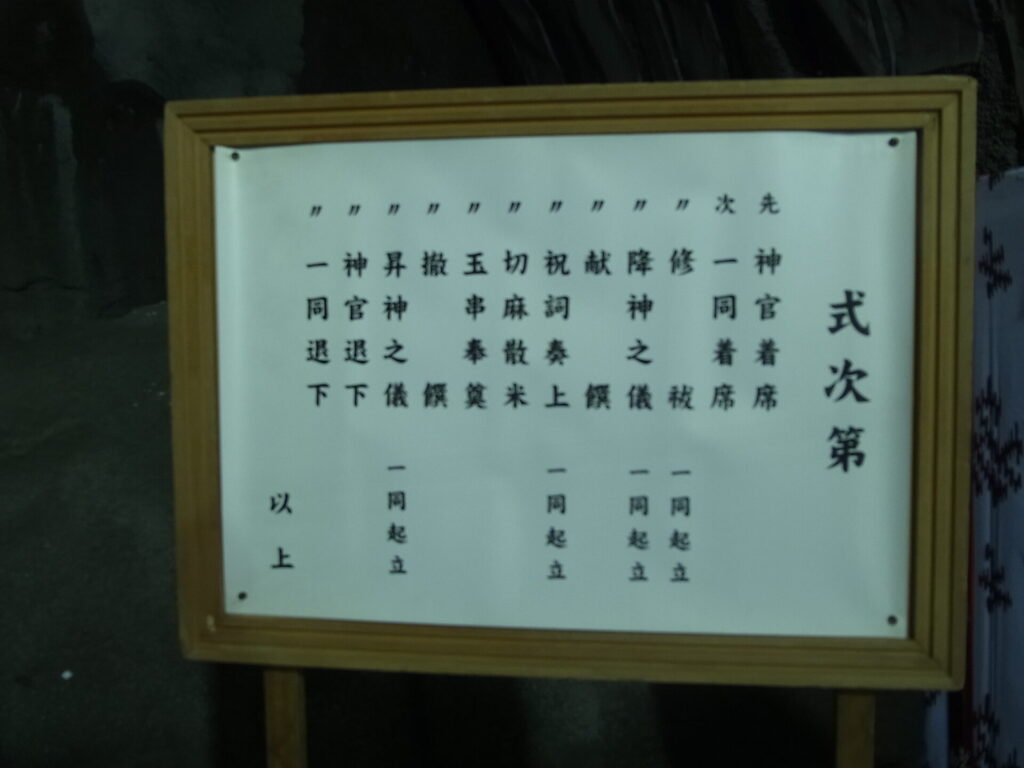 式次第
先 神官着席
次 一同着席
〃 修祓 一同起立
〃 降神之儀 一同起立
〃 献饌
〃 祝詞奏上 一同起立
〃 切麻散米
〃 玉串奉奠
〃 撤饌
〃 昇神之儀 一同起立
〃 神官退下
〃 一同退下
以上